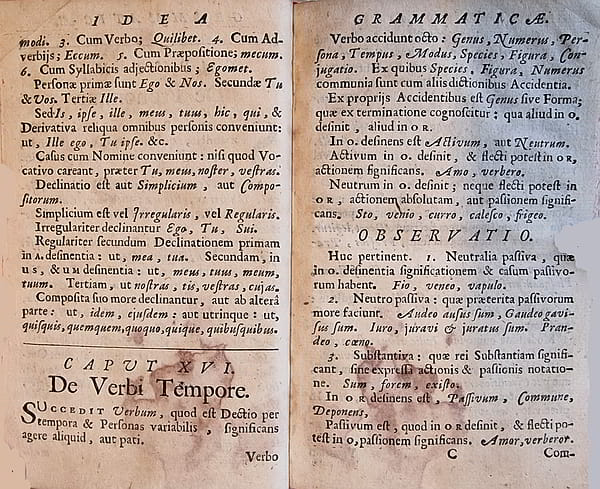 IDEA
modi. 3. Cum Verbo; Quilibet. 4. Cum Ad-
verbijs; Eccum. 5. Cum Præpositione; mecum.
6. Cum Syllabicis adjectionibus; Egomet.
Personæ primæ sunt Ego & Nos. Secundæ Tu
& Vos. Tertiæ Ille.
Sed Is, ipse, ille, meus, tuus, hic, qui, &
Derivativa reliqua omnibus personis conveniunt:
ut, Ille ego, Tu ipse. &c.
Casus cum Nomine conveniunt: nisi quod Vo-
cativo careant, præter Tu, meus, noster, vestras.
Declinatio est aut Simplicium, aut Compo-
sitorum.
Simplicium est vel Irregularis, vel Regularis.
Irregulariter declinantur Ego, Tu, Sui.
Regulariter secundum Declinationem primam
in A. desinentia: ut, mea, tua. Secundam, in
US, & UM desinentia: ut, meus, tuus, meum,
tuum. Tertiam, ut nostras, tis, vestras, cujas.
Composita suo more declinantur, aut ab alterâ
parte: ut, idem, ejusdem: aut utrinque: ut,
quisquis, quemquem, quoquo, quique, quibusquibus.
CAPUT XVI.
De Verbi Tempore.
SUCCEDIT Verbum, quod est Dectio per
tempora & Personas variabilis, significans
agere aliquid, aut pati.
Verbo
GRAMMATICÆ.
Verbo accidunt octo: Genus, Numerus, Per-
sona, Tempus, Modus, Species, Figura, Con-
jugatio. Ex quibus Species, Figura, Numerus
communia sunt cum aliis dictionibus Accidentia.
Ex proprijs Accidentibus est Genus sive Forma;
quæ ex terminatione cognoscitur: qua aliud in O.
definit, aliud in OR.
In O. desinens est Activum, aut Neutrum.
Activum in O. definit, & flecti potest in OR,
actionem significans. Amo, verbero.
Neutrum in O. definit; neque flecti potest in
OR, actionem absolutam, aut passionem signifi-
cans. Sto, venio, curro, calesco, frigeo.
OBSERVATIO.
Huc pertinent. 1. Neutralia passiva, quæ
in O. desinentia significationem & casum passivo-
rum habent. Fio, veneo, vapulo.
2. Neutro passiva: quæ præterita passivorum
more faciunt. Audeo ausus sum, Gaudeo gavi-
sus sum. Iuro, juravi & juratus sum. Pran-
deo, cœno.
3. Substantiva: quæ rei Substantiam signifi-
cant, sine expressa actionis & passionis notatio-
ne. Sum, forem, existo.
In OR desinens est, Passivum, Commune,
Deponens,
Passivum est, quod in OR definit, & flecti po-
test in O, passionem significans. Amor, verberor.
C Com-